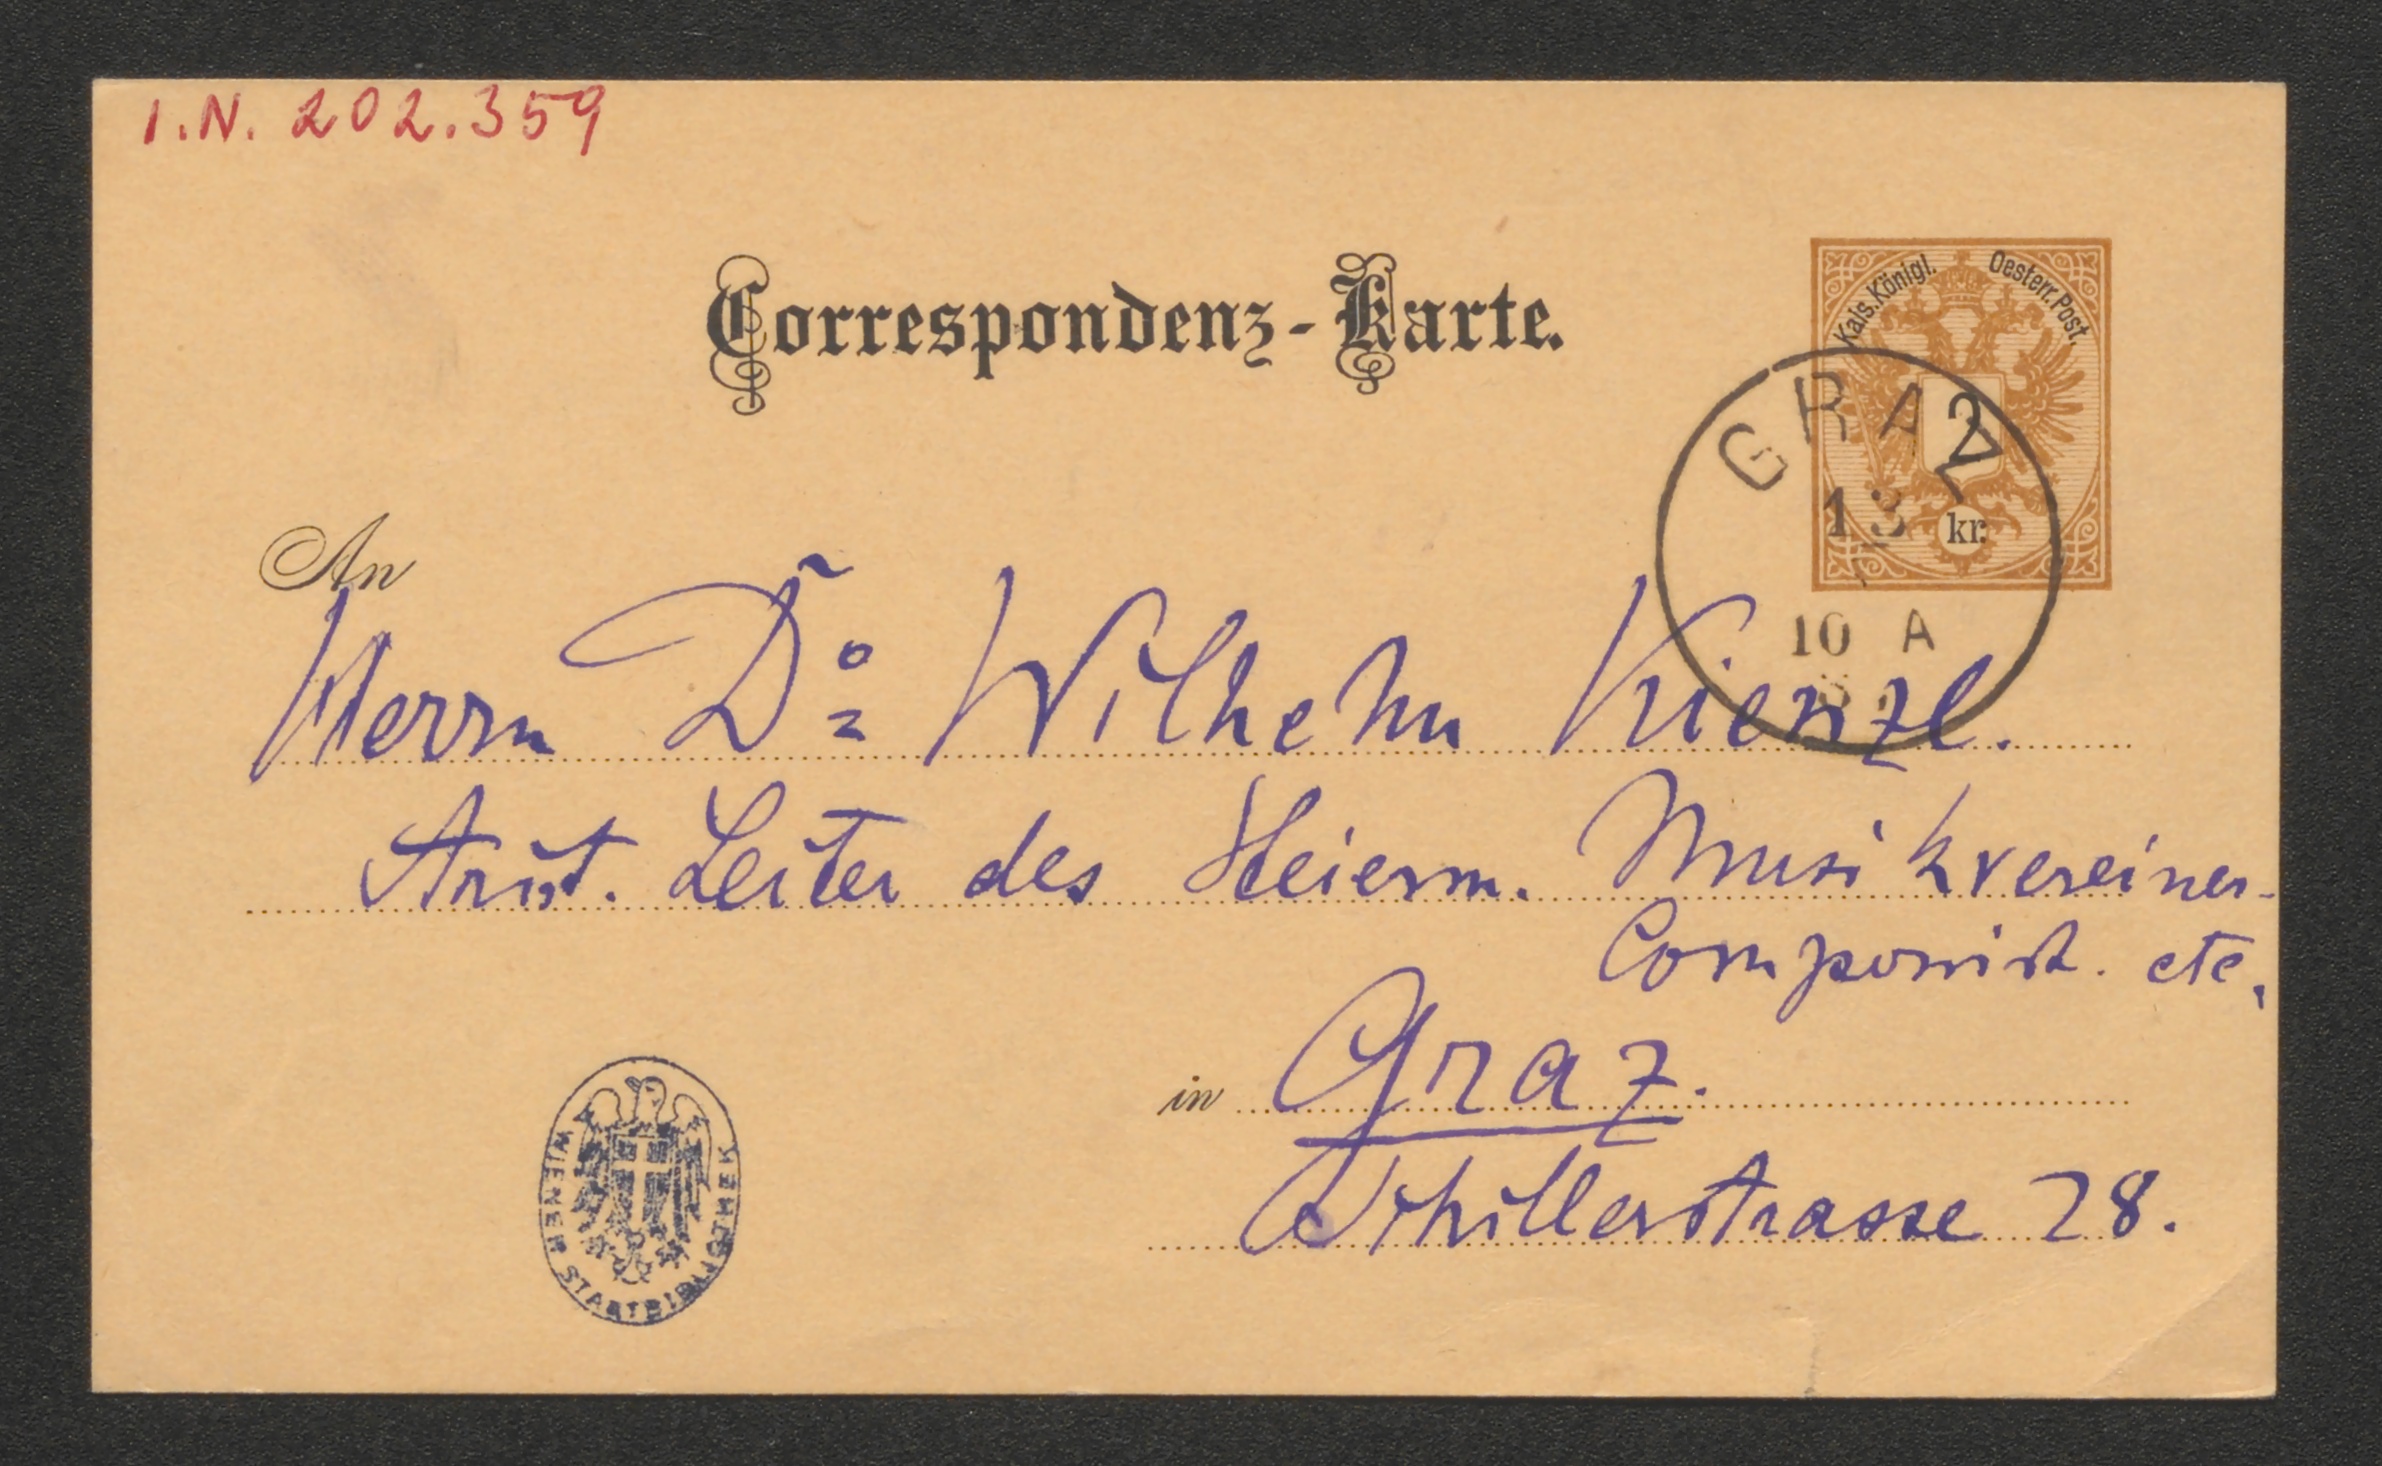 I.N. 202.359
Correspondenz-Karte.
Kais. Königl. Oesterr. Post.
2
kr.
GRAZ
13
10 A
An
Herrn Dr Wilhelm Kienzl.
Artist. Leiter des Steierm. Musikvereines-
Componist. etc.
in Graz.
Schillerstrasse 28.
WIENER STADTBIBLIOTHEK